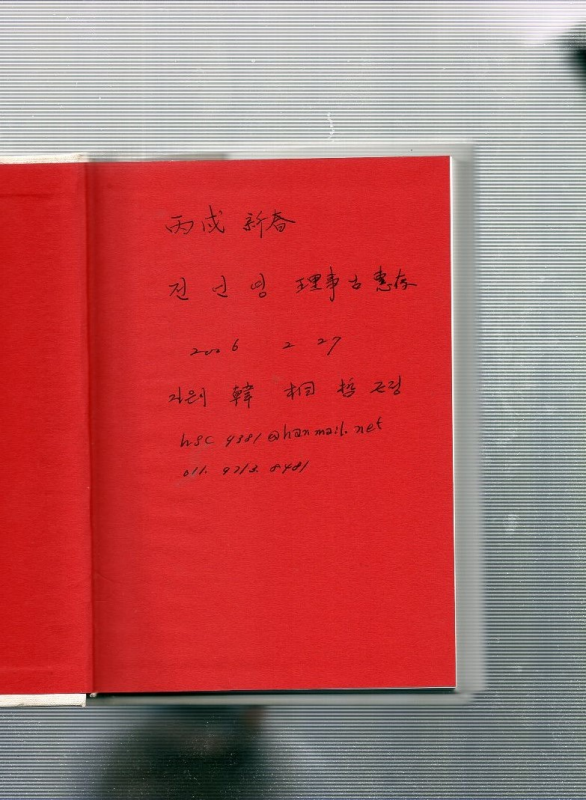 丙戌 新春
전 인 영 理事님 惠存
2006 2 27
지은이 韓 相 哲 드림
hsc 4381@hanmail.net
011. 9713. 8481